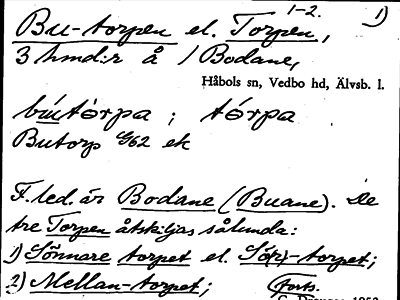 1-2. 1)
Bu-torpen el. Torpen,
3 hmd:r å / Bodane,
Håbols sn, Vedbo hd, Älvsb. l.
bu̇tórpa ; tórpa
Butorp G62 ek
F. led. är Bodane (Buane). De
tre Torpen åtskiljas sålunda:
1) Sönnare torpet el. Sö(r)-torpet;
2) Mellan-torpet; (forts.